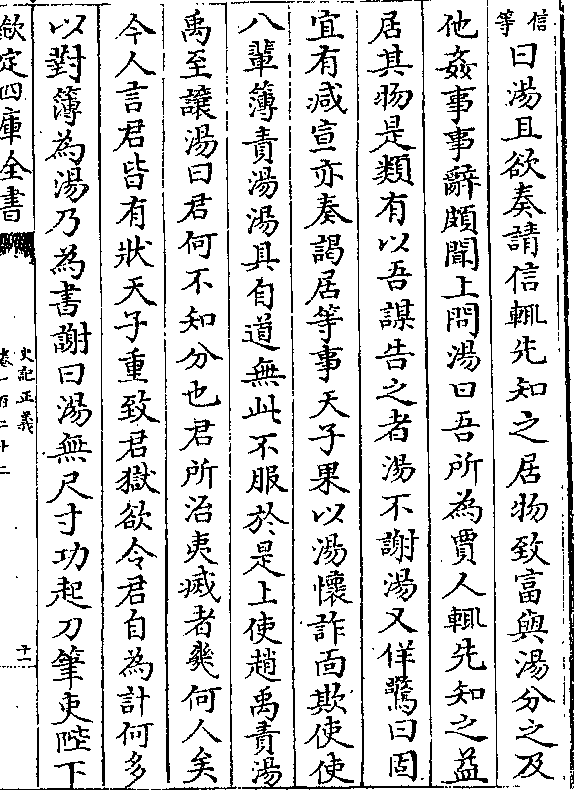 信等曰湯且欲奏請信輒先知之居物致富與湯分之及
他姦事事辭頗聞上問湯曰吾所為賈人輒先知之益
居其物是類有以吾謀告之者湯不謝湯又佯驚曰固
宜有减宣亦奏謁居等事天子果以湯懷詐面欺使使
八輩簿責湯湯具自道無此不服於是上使趙禹責湯
禹至讓湯曰君何不知分也君所治夷㓕者幾何人矣
今人言君皆有狀天子重致君獄欲令君自為計何多
以對簿為湯乃為書謝曰湯無尺寸功起刀筆吏陛下
欽定四庫全書
史記正義
卷一百二十二
十一